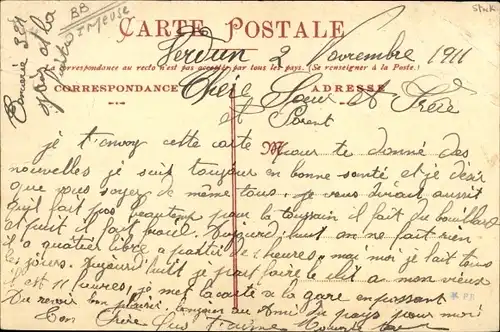 Stuk
BB
Meuse
CARTE POSTALE
Verdun 2 Novembre 1911
Correspondance au recto n'est pas acceptée par tous les pays. (Se renseigner à la Poste.)
CORRESPONDANCE ADRESSE
Chère Soeur et Frère
et Parent
je t'envoy cette carte pour te donné des
M
nouvelles je suit toujour en bonne santé et je désir
que vous soyer de même tous, je vous dirait aussit
qu'il fait pas beautemp pour la toussain il fait du brouillard
et puit il fait froid. Aujourd'huit on ne fait rien
il a quatier libre a partir de heures, mai moi je fait tous
les jours. Aujourd'huit je peut faire le a mon vieux
il est 11 heures, je met la carte a la gare en passant
Au revoir bon plaisir, bonjour au Ami du pays pour moi
Ton Frère qui t'aime
* FB